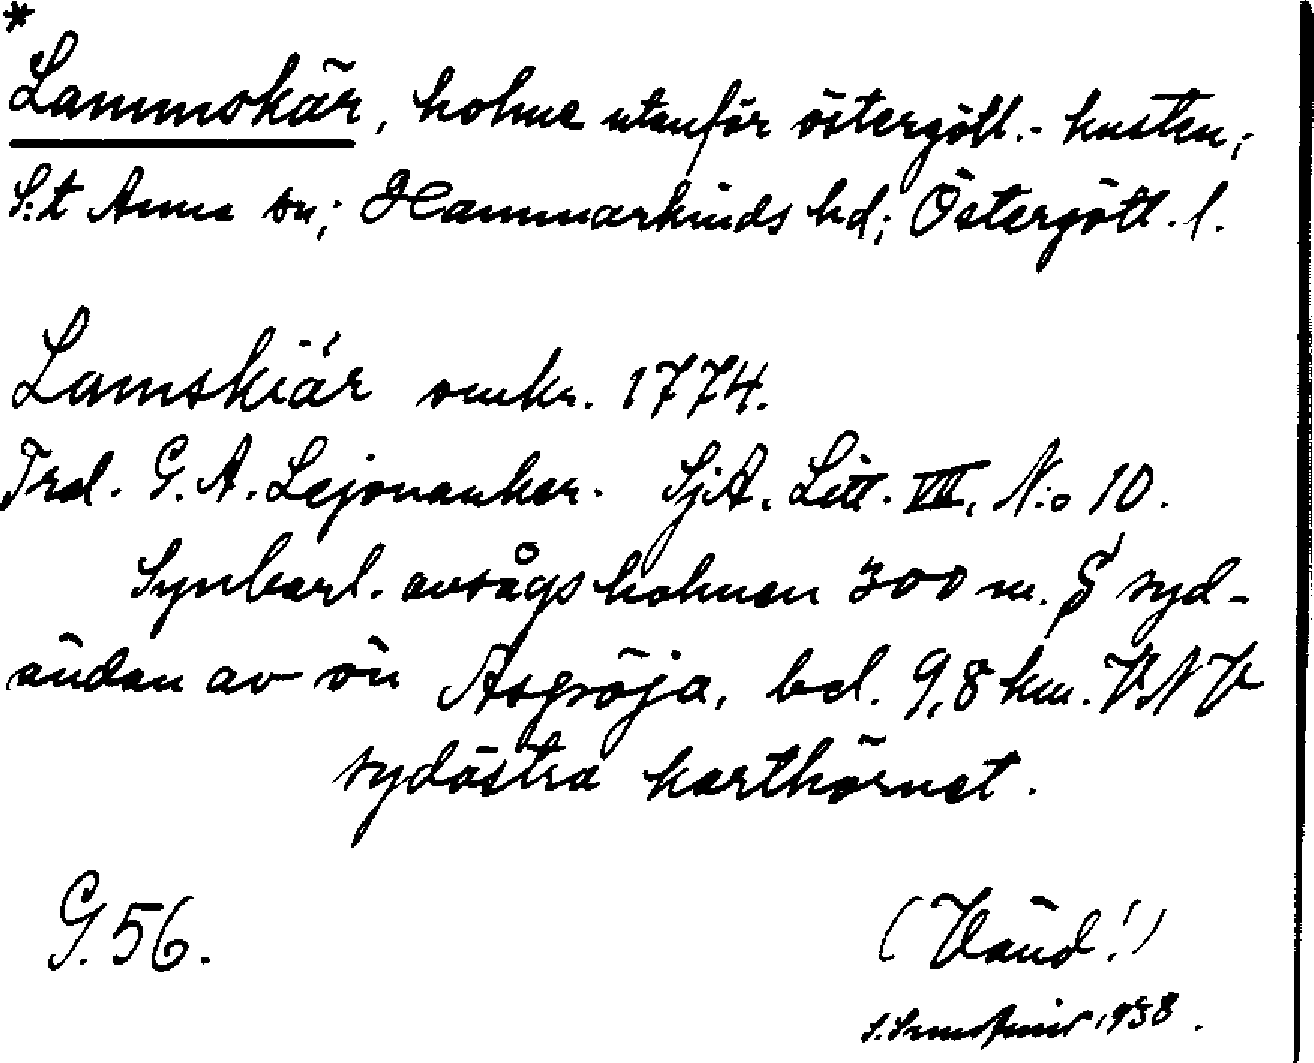 *
Lammskär, holme utanför östergötl.- kusten;
S:t Anna sn; Hammarkinds hd; Östergötl. l.
Lamskiär omkr. 1774.
Frd. G. A. Lejonanker. SjA. Litt. VII. N:o 10.
Synbarl. avsågs holmen 300 m. S syd-
ändan av ön Aspöja, bel. 9,8 km. VNV
sydöstra karthörnet.
G. 56.
(Vänd!)
1938.